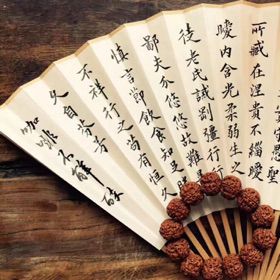 愚聖
所臧在涅貴不緇曖
曖內含光柔弱生之
徒老氏誡剛彊行
鄙夫介悠悠故難量
慎言節飲食知足勝
不祥行之苟有恆久
久自芬芳
咖啡不